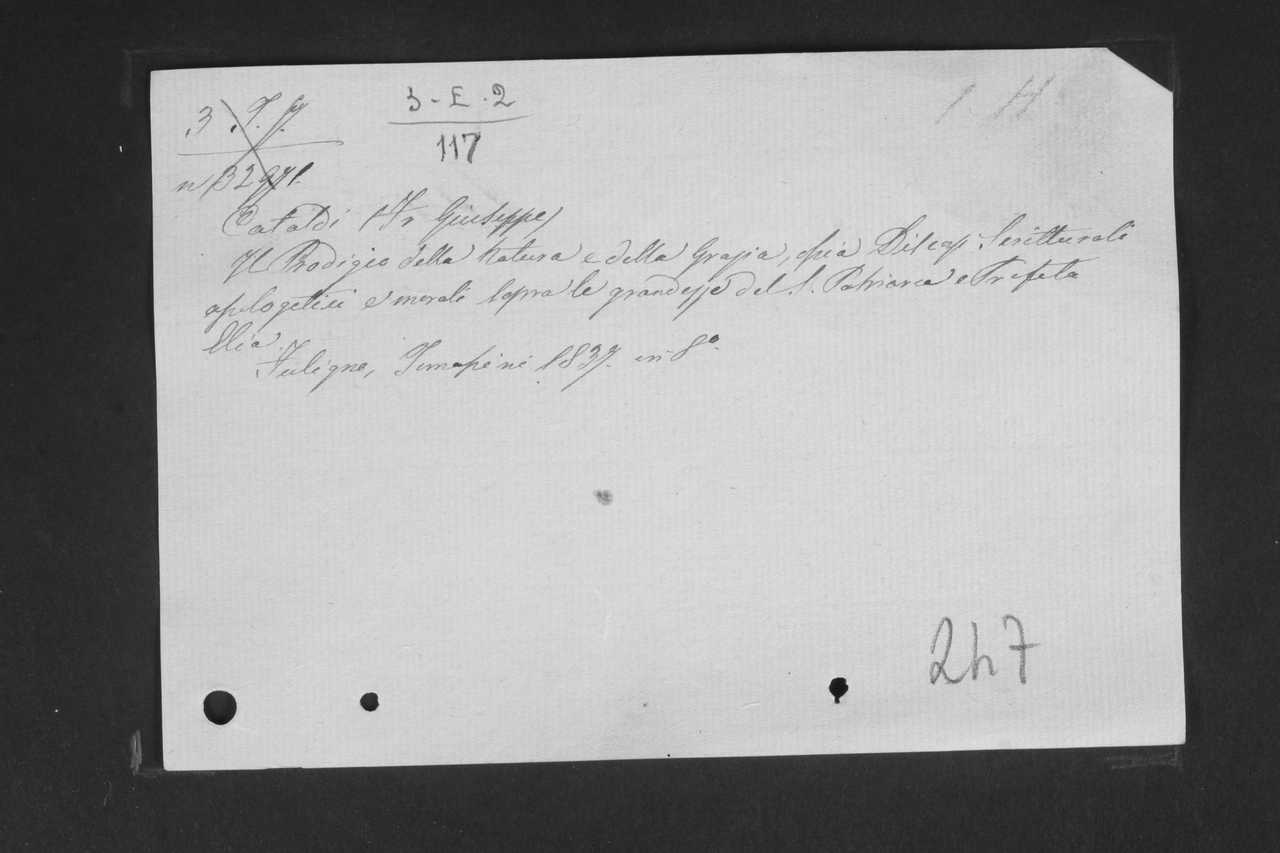 3-E.2
117
n 3297.
Cataldi (Fr Giuseppe)
Il Prodigio della Natura e della Grazia, ossia Discorsi Scritturali
apologetici e morali sopra le grandezze del S. Patriarca e Profeta
Elia.
Fuligno, Tomassini 1837. in 8º.
247